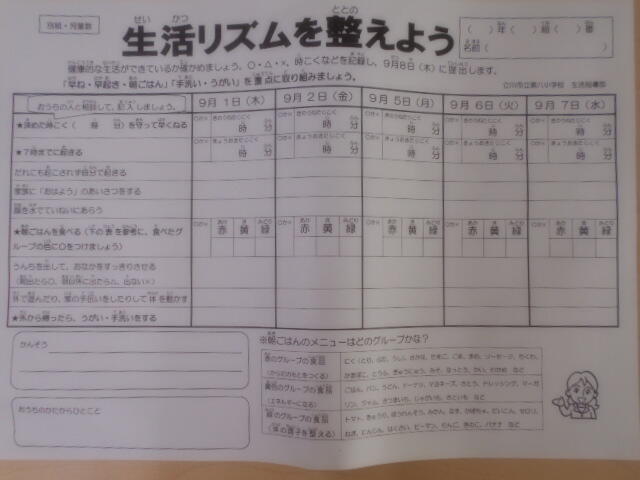 別紙・児童数
せい かつ ととの
生活リズムを整えよう
( )年( )組( )番
名前( )
健康的な生活ができているか確かめましょう。○・△・×、時こくなどを記録し、9月8日(木)に提出します。
「早ね・早起き・朝ごはん」「手洗い・うがい」を重点に取り組みましょう。
立川市立第八小学校 生活指導部
おうちの人と相談して、記入しましょう。
9月1日(木) 9月2日(金) 9月5日(月) 9月6日(火) 9月7日(水)
★決めた時こく( 時 分)を守って早くねる
時 分 時 分 時 分 時 分 時 分
★7時までに起きる
時 分 時 分 時 分 時 分 時 分
だれにも起こされず自分で起きる
家族に「おはよう」のあいさつをする
顔を水でていねいにあらう
★朝ごはんを食べる(下の表を参考に、食べたグ
ループの色に○をつけましょう)
赤 黄 緑 赤 黄 緑 赤 黄 緑 赤 黄 緑 赤 黄 緑
うんちを出して、おなかをすっきりさせる
(朝出たら○、朝以外に出たら△、出ない×)
外で遊んだり、家の手伝いをしたりして体を動かす
★外から帰ったら、うがい・手洗いをする
かんそう
おうちのかたからひとこと
※朝ごはんのメニューはどのグループかな?
赤のグループの食品
(からだのもとをつくる)
黄色のグループの食品
(エネルギーになる)
ごはん、パン、うどん、ドーナツ、マヨネーズ、さとう、ドレッシング、マーガ
リン、ジャム、さつまいも、じゃがいも、さといも など
緑のグループの食品
(体の調子を整える)
トマト、きゅうり、ほうれんそう、みかん、なす、かぼちゃ、だいこん、セロリ、
ねぎ、にんじん、はくさい、ピーマン、りんご、きのこ、バナナ など